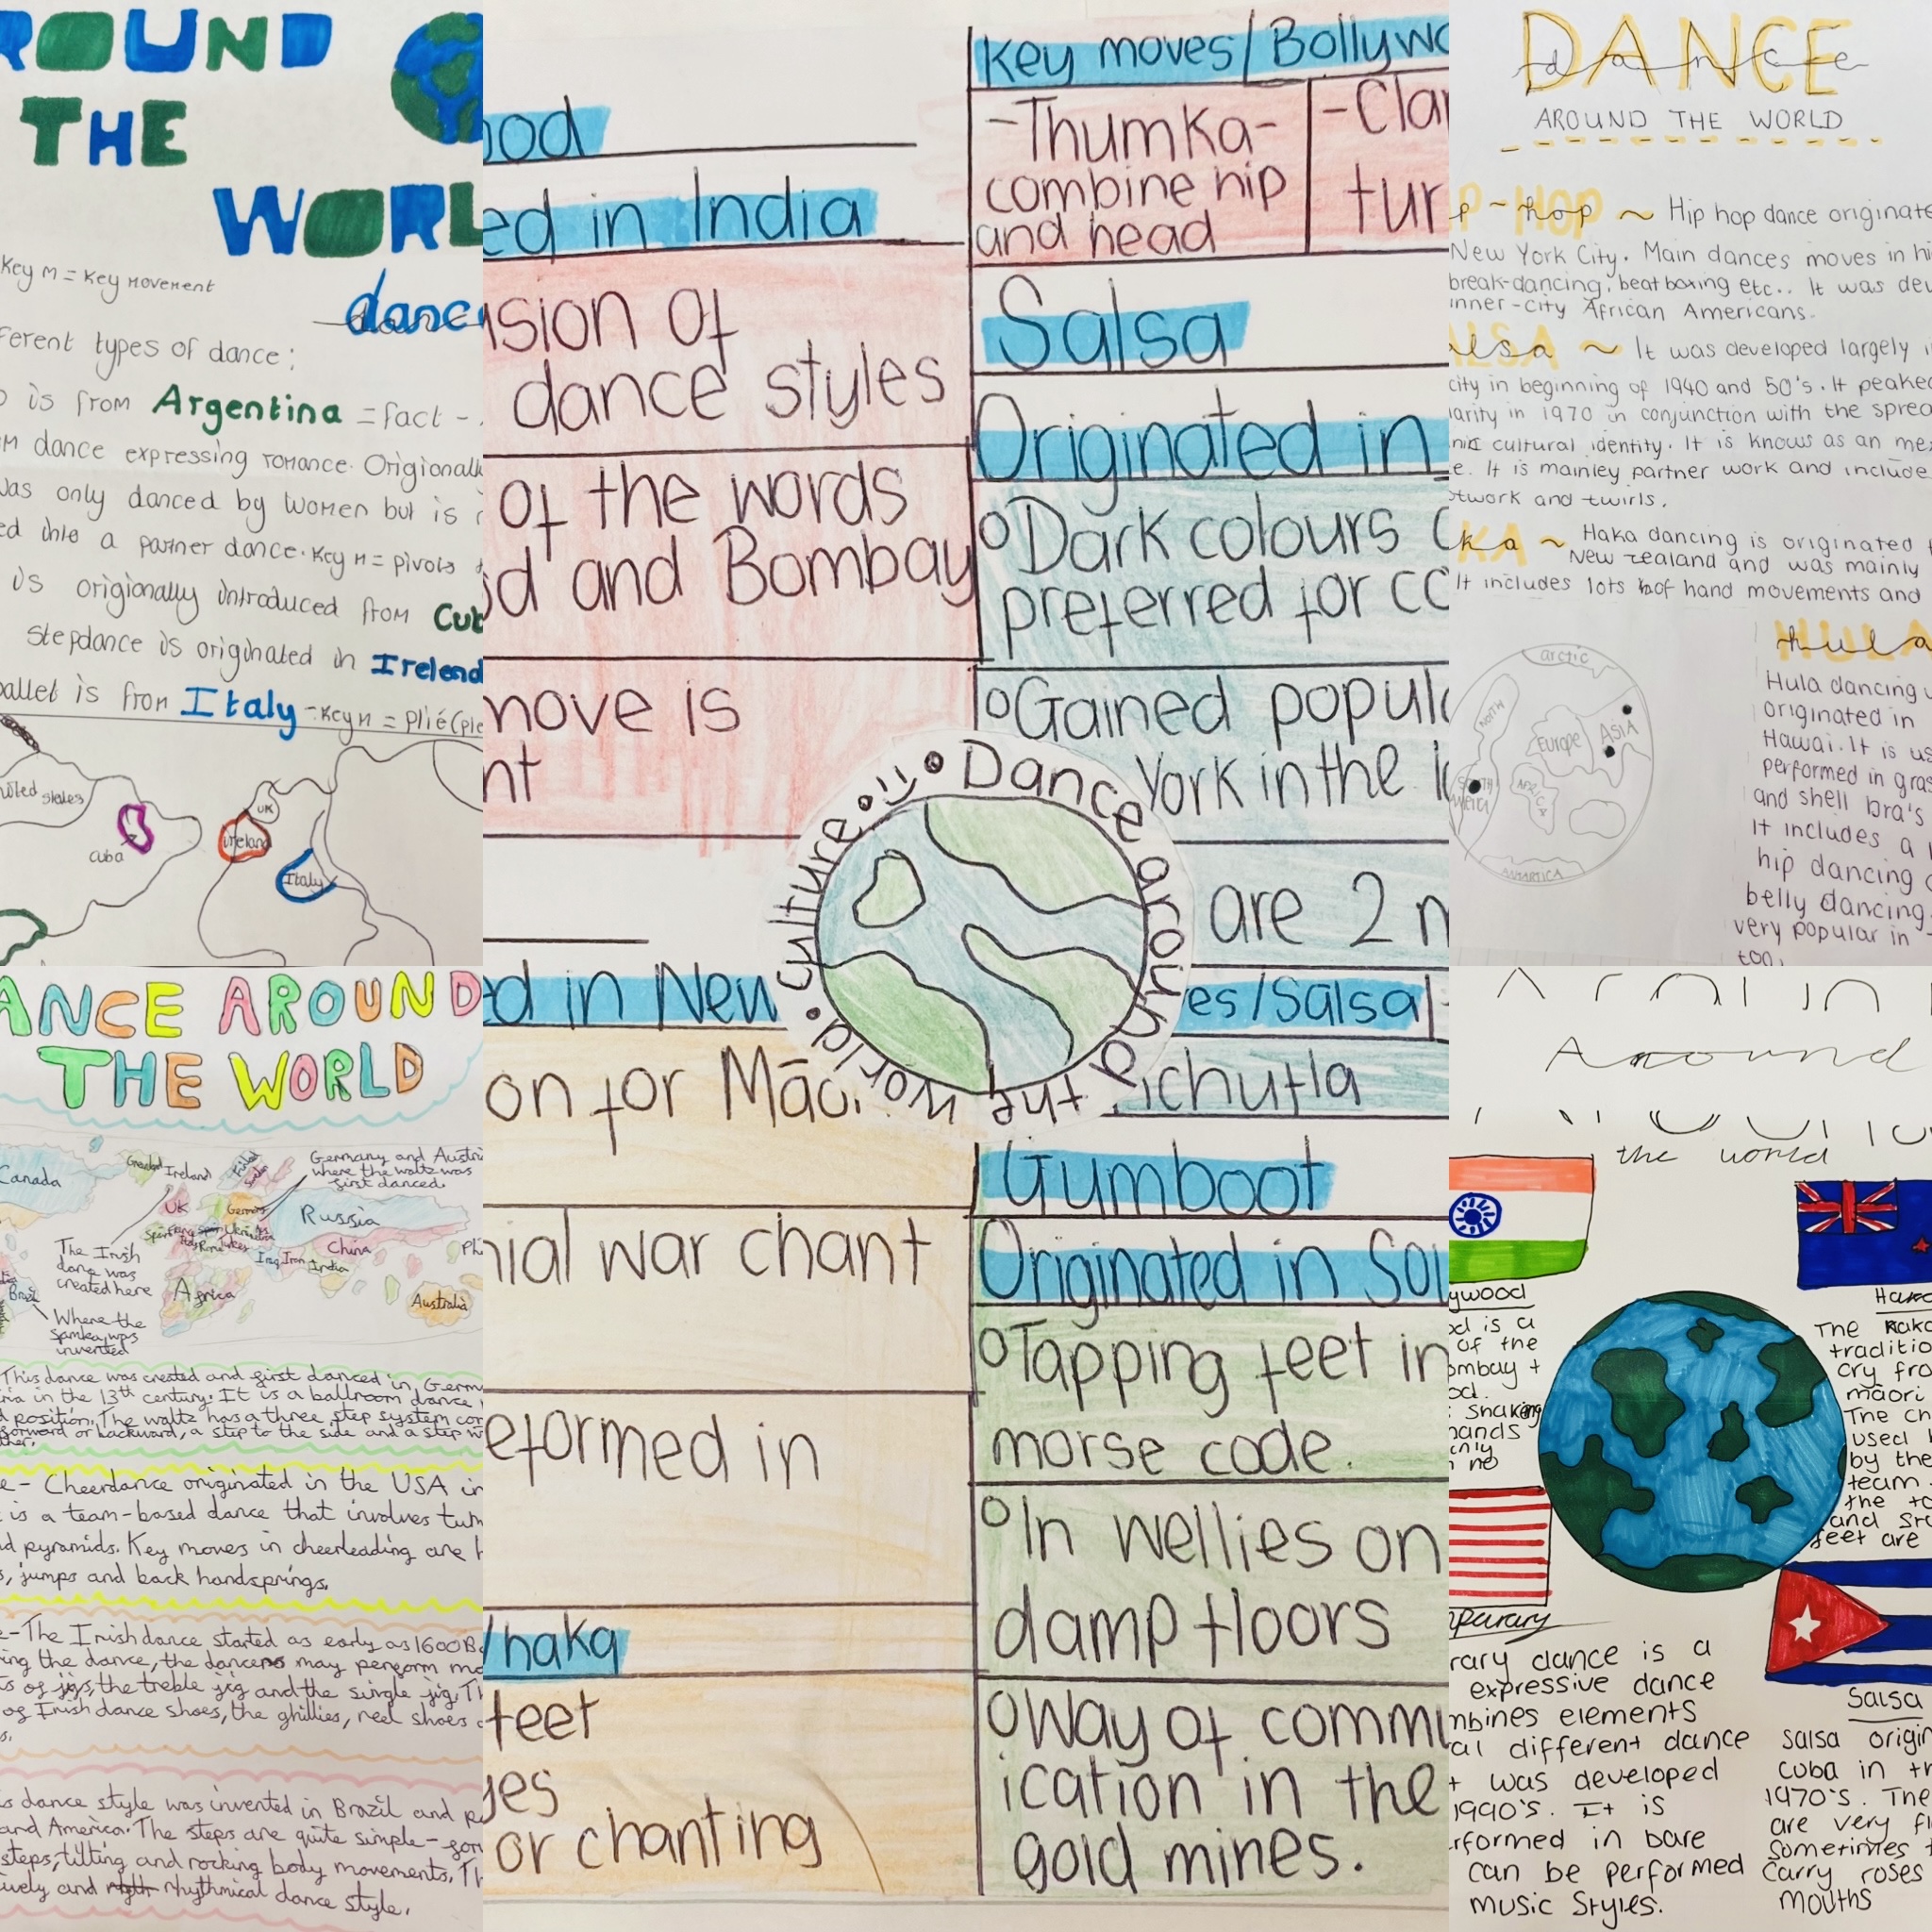 ROUND
THE
WORL
danc
Key M = Key Movement
fferent types of dance;
is from Argentina = fact -
dance expressing romance. Origionall
was only danced by women but is
ed into a partner dance. Key M = pivots
is origionally introduced from Cub
stepdance is originated in Irelend
ballet is from Italy - Key M = plié (plé
united states
cuba
UK
ireland
Italy
ood
ed in India
sion of
dance styles
of the words
d and Bombay
move is
nt
ed in New
on for Māo
nial war chant
eformed in
/haka
feet
yes
or chanting
Key moves/Bollywo
-Thumka-
combine hip
and head
-Cla
tur
Salsa
Originated in
Dark colours
preferred for co
Gained popula
York in the
are 2 m
es/Salsa
chufla
Gumboot
Originated in Sou
Tapping feet in
morse code.
In wellies on
damp floors
Way of commu
ication in the
gold mines.
Dance around the world • culture •
DANCE
dance
AROUND THE WORLD
P-HOP
p-hop ~ Hip hop dance originate
New York City. Main dances moves in hi
break-dancing, beatboxing etc.. It was dev
inner-city African Americans.
ALSA
alsa ~ It was developed largely i
city in beginning of 1940 and 50's. It peaked
arity in 1970 in conjunction with the sprea
cultural identity. It is knows as an me
e. It is mainley partner work and include
otwork and twirls.
KA
ka ~ Haka dancing is originated f
New Zealand and was mainly
It includes lots of hand movements and
arctic
NORTH
Europe
ASIA
SOUTH
AFRICA
ANTARTICA
HULA
hula
Hula dancing
originated in
Hawai. It is us
performed in gras
and shell bra's
It includes a l
hip dancing
belly dancing.
very popular in
too.
ANCE AROUND
THE WORLD
Canada
Ireland
UK
Germany and Austri
where the waltz was
first danced.
Russia
China
Iraq
Iran
India
Africa
Australia
Brazil
The Irish
dance was
created here
Where the
Samba was
invented
This dance was created and first danced in Germ
ria in the 13th century. It is a ballroom dance
d position. The waltz has a three step system con
forward or backward, a step to the side and a step
ther.
e- Cheerdance originated in the USA in
is a team-based dance that involves tum
d pyramids. Key moves in cheerleading are
s, jumps and back handsprings.
e-The Irish dance started as early as 1600B
ing the dance, the dancers may perform mo
s of jigs, the treble jig and the single jig. Th
of Irish dance shoes, the ghillies, reel shoes
s.
is dance style was invented in Brazil and
and America. The steps are quite simple- for
steps, tilting and rocking body movements. Th
ively and rhythmical dance style.
Around
the world
ywood
od is a
of the
ombay +
od.
snaking
hands
only
no
Haka
The haka
traditio
cry fro
māori
The ch
used
by the
team.
the to
and str
feet are
mparary
rary dance is a
expressive dance
mbines elements
al different dance
t was developed
1990's. It is
rformed in bare
can be performed
music styles.
Salsa
salsa origin
cuba in th
1970's. The
are very fl
Sometimes t
Carry roses
mouths